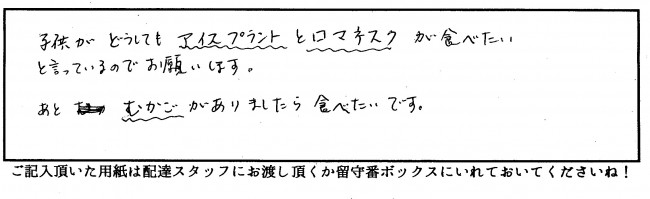 子供が どうしても アイスプラント と ロマネスク が食べたい
と言っているので お願いします。
あと むかご がありましたら 食べたいです。
ご記入頂いた用紙は配達スタッフにお渡し頂くか留守番ボックスにいれておいてくださいね！